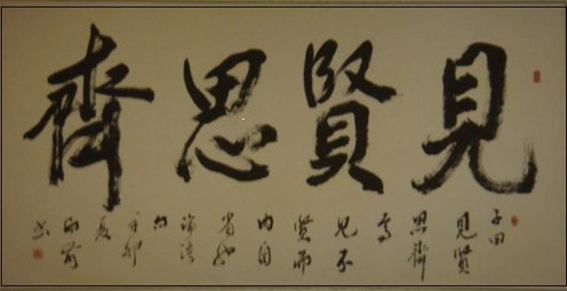 見賢思齊
子曰
見賢
思齊
焉
見不
賢而
内自
省也
論語
句
夏